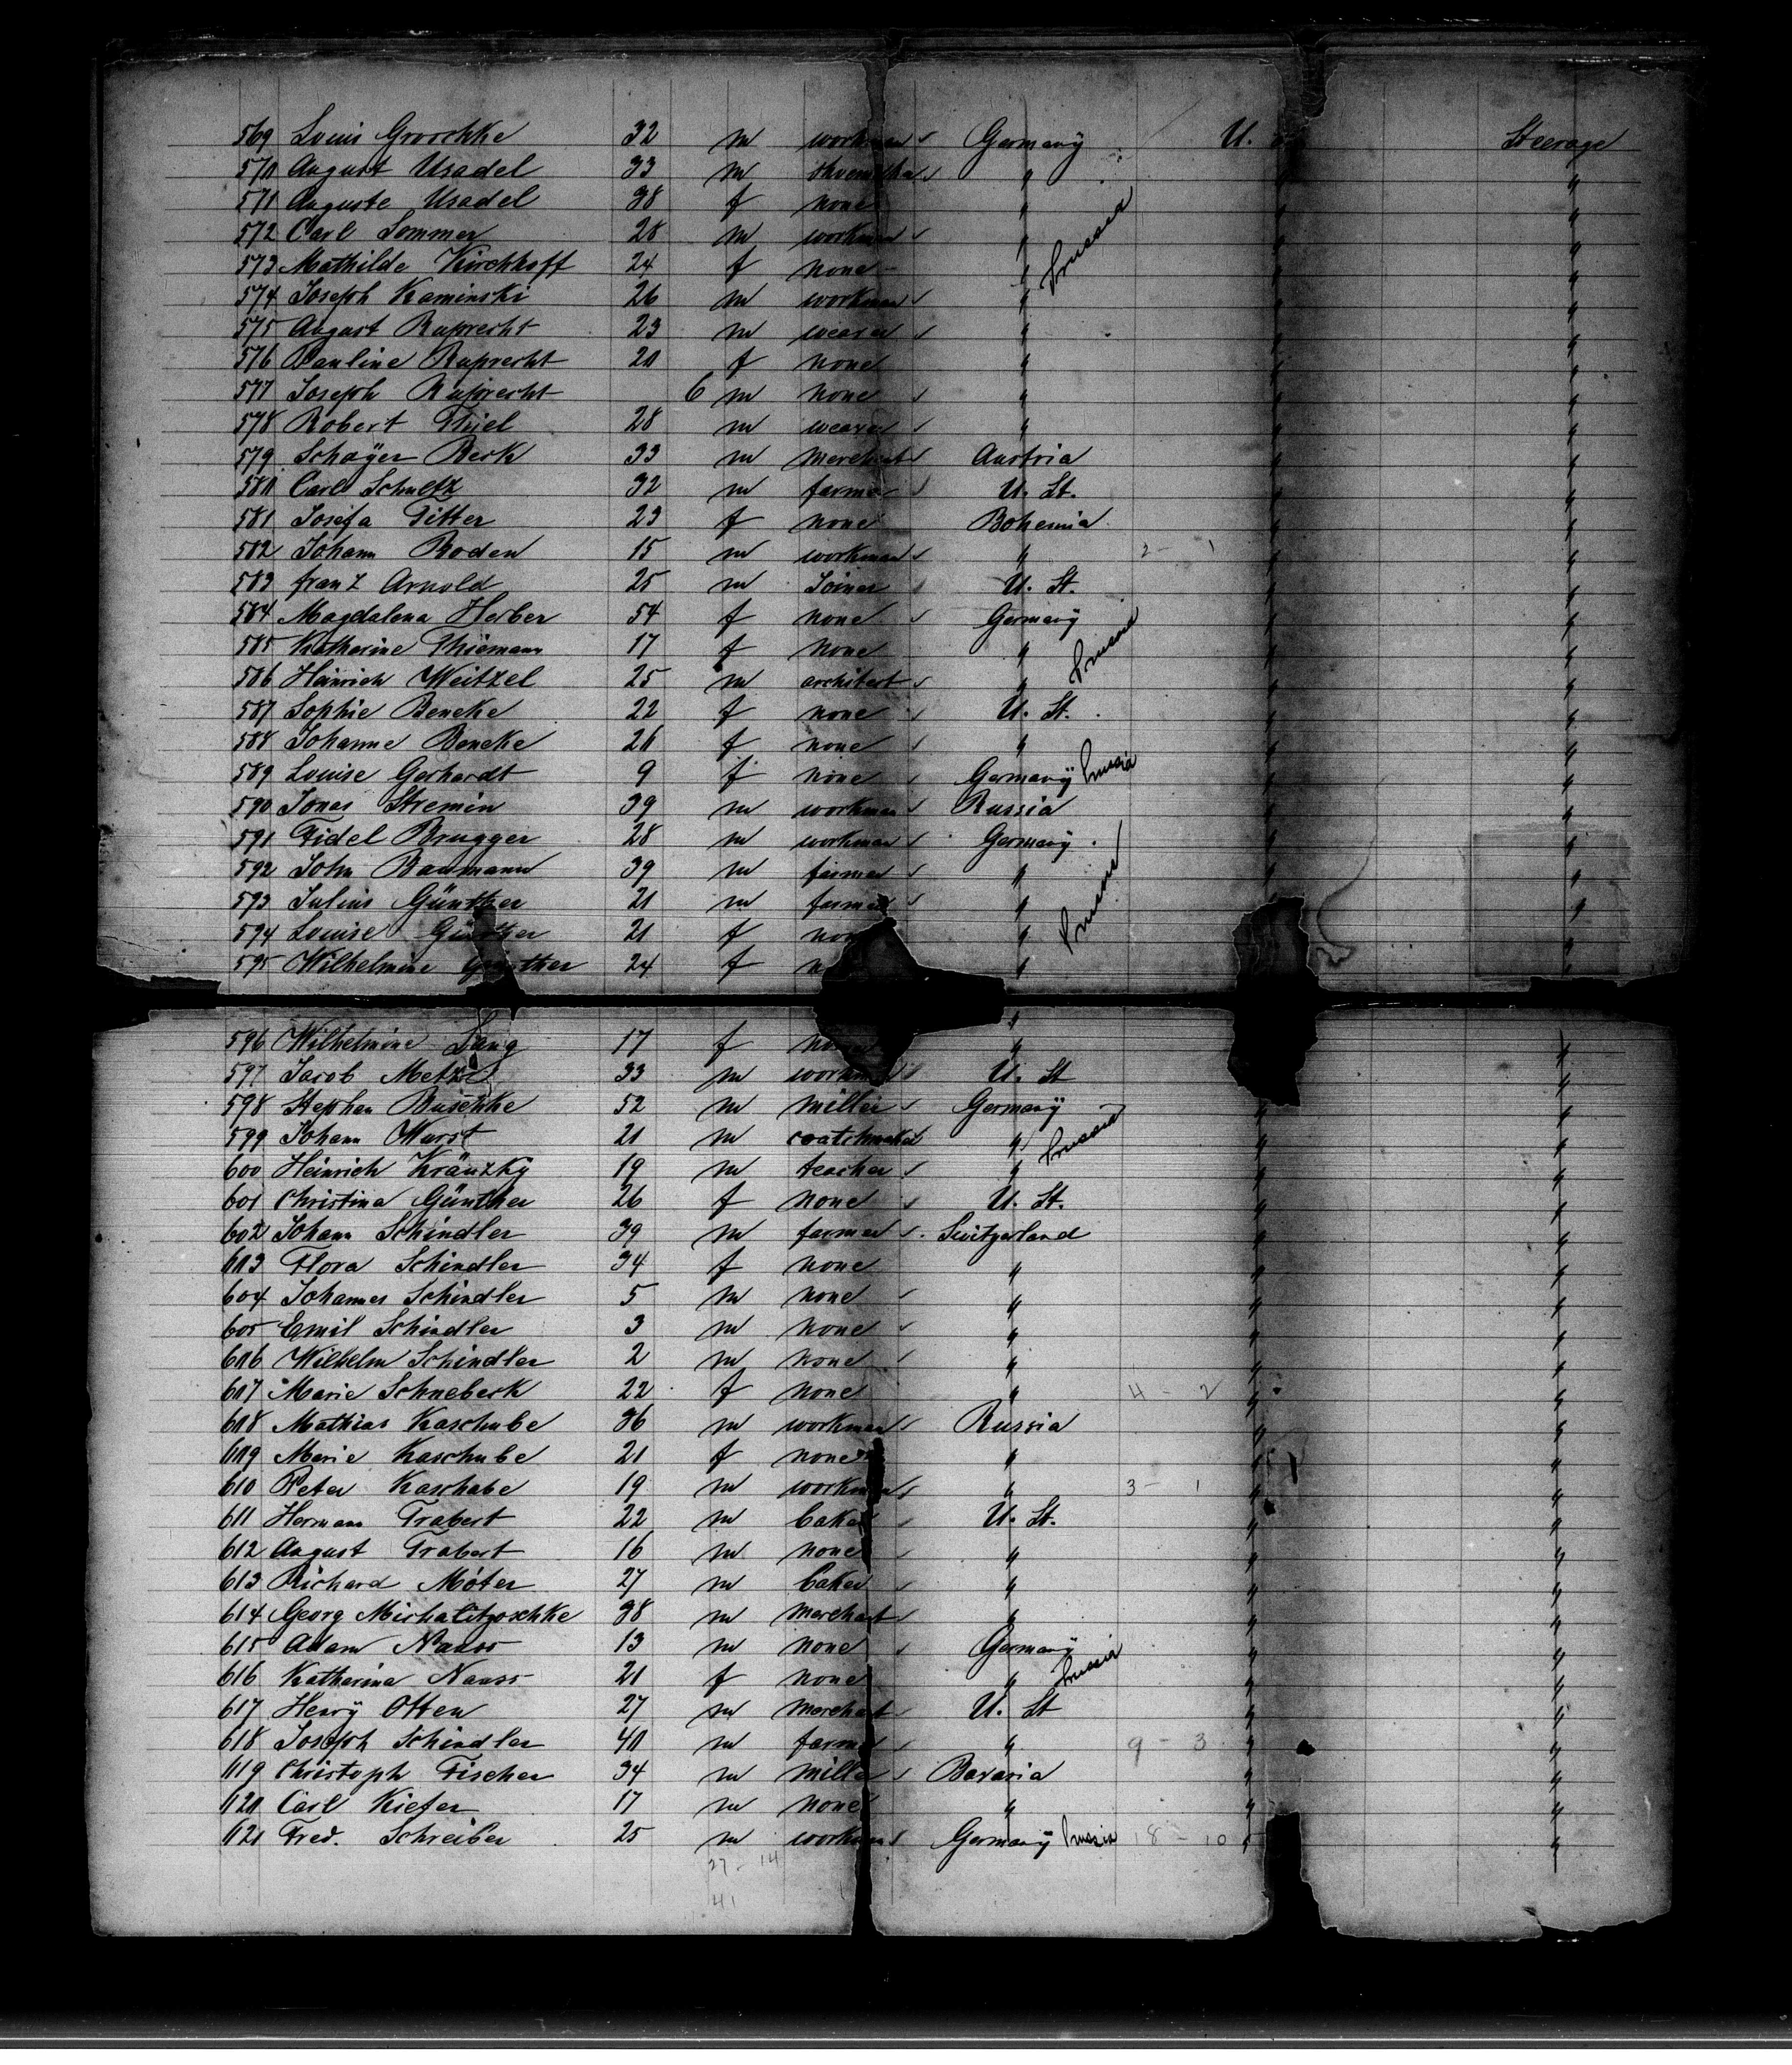 569 Louis Groschke 32 m workman Germany U. St. Steerage
570 August Usadel 33 m " " "
571 Auguste Usadel 38 f none " " "
572 Carl Sommer 28 m workman " Prussia " "
573 Mathilde Kirchhoff 24 f none " " "
574 Joseph Kaminski 26 m workman " " "
575 August Ruprecht 23 m weaver " " "
576 Pauline Ruprecht 20 f none " " "
577 Joseph Ruprecht 6 m none " " "
578 Robert Thiel 28 m weaver " " "
579 Schayer Beck 33 m merchant Austria " "
580 Carl Schultz 32 m farmer U. St. " "
581 Josefa Titter 23 f none Bohemia " "
582 Johann Roden 15 m workman " 2 - 1 " "
583 Franz Arnold 25 m Joiner U. St. " "
584 Magdalena Herber 54 f none Germany " "
585 Katharine Thiemann 17 f none " Prussia " "
586 Heinrich Weitzel 25 m architect " " "
587 Sophie Beneke 22 f none U. St. " "
588 Johanne Beneke 20 f none " " "
589 Louise Gerhardt 9 f none Germany Prussia " "
590 Jonas Stremin 39 m workman Russia " "
591 Fidel Brugger 28 m workman Germany " "
592 John Baumann 39 m farmer " " "
593 Julius Günther 21 m farmer " Prussia " "
594 Louise Günther 21 f none " "
595 Wilhelmine Günther 24 f " "
596 Wilhelmine Lang 17 f none " "
597 Jacob Metzel 33 m workman U. St "
598 Stephan Buschke 52 m miller Germany " "
599 Johann Wurst 21 m watchmaker " Prussia " "
600 Heinrich Kränzky 19 m teacher " " "
601 Christina Günther 26 f none U. St. " "
602 Johann Schindler 39 m farmer Switzerland " "
603 Flora Schindler 34 f none " " "
604 Johannes Schindler 5 m none " " "
605 Emil Schindler 3 m none " " "
606 Wilhelm Schindler 2 m none " " "
607 Marie Schnebeck 22 f none " 4 - 2 " "
608 Mathias Kaschube 36 m workman Russia " "
609 Marie Kaschube 21 f none " " "
610 Peter Kaschabe 19 m workman " 3 - 1 " "
611 Hermann Trabert 22 m baker U. St. " "
612 August Trabert 16 m none " " "
613 Richard Möter 27 m baker " " "
614 Georg Michalitzoschke 38 m merchant " " "
615 Adam Nauss 13 m none Germany " "
616 Katharina Nauss 21 f none " Prussia " "
617 Henry Otten 27 m merchant U. St " "
618 Joseph Schindler 40 m farmer " 9 - 3 " "
619 Christoph Fischer 34 m miller Bavaria " "
620 Carl Kiefer 17 m none " " "
621 Fred. Schreiber 25 m workman Germany Prussia 18 - 10 " "
27 - 14
41